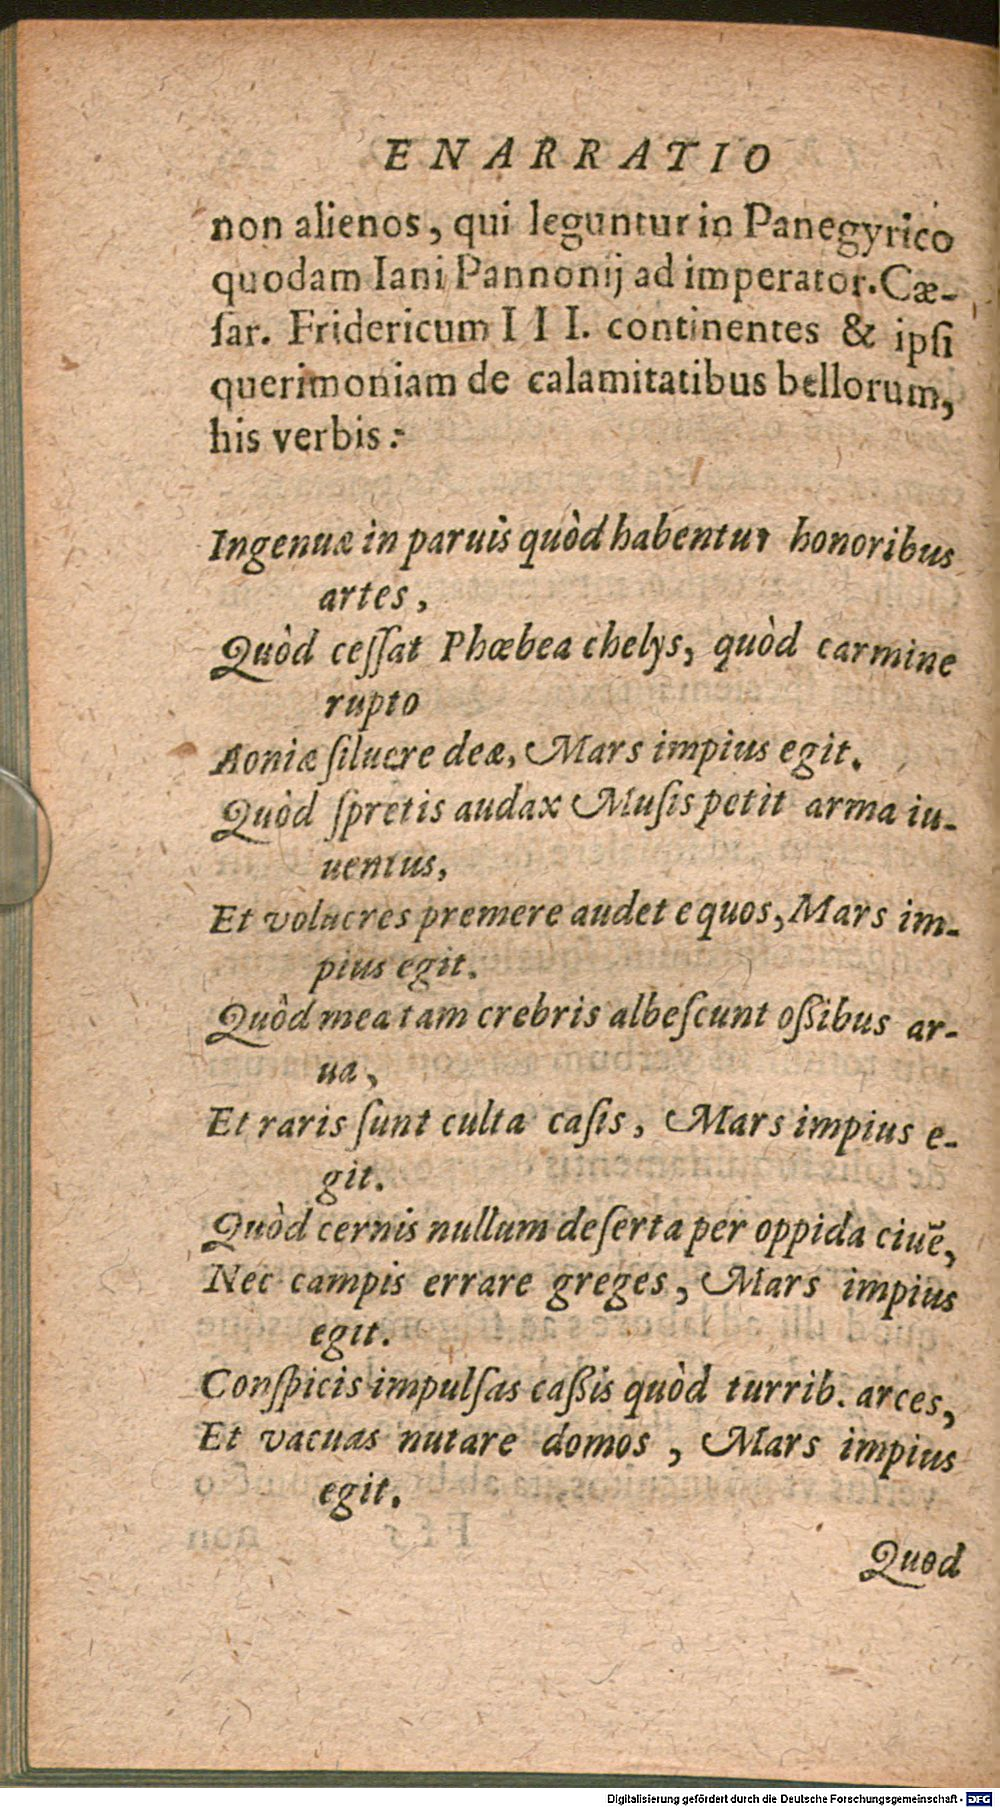 ENARRATIO
non alienos, qui leguntur in Panegyrico
quodam Iani Pannonij ad imperator. Cæ-
ſar. Fridericum III. continentes & ipſi
querimoniam de calamitatibus bellorum,
his verbis:
Ingenuæ in paruis quòd habentur honoribus
artes,
Quòd ceſſat Phœbea chelys, quòd carmine
rupto
Aoniæ ſiluere deæ, Mars impius egit.
Quòd ſpretis audax Muſis petit arma iu-
uentus,
Et volucres premere audet equos, Mars im-
pius egit.
Quòd mea tam crebris albeſcunt oßibus ar-
ua,
Et raris ſunt culta caſis, Mars impius e-
git.
Quòd cernis nullum deſerta per oppida ciuē,
Nec campis errare greges, Mars impius
egit.
Conſpicis impulſas caßis quòd turrib. arces,
Et vacuas nutare domos, Mars impius
egit.
Quod
Digitalisierung gefördert durch die Deutsche Forschungsgemeinschaft - DFG